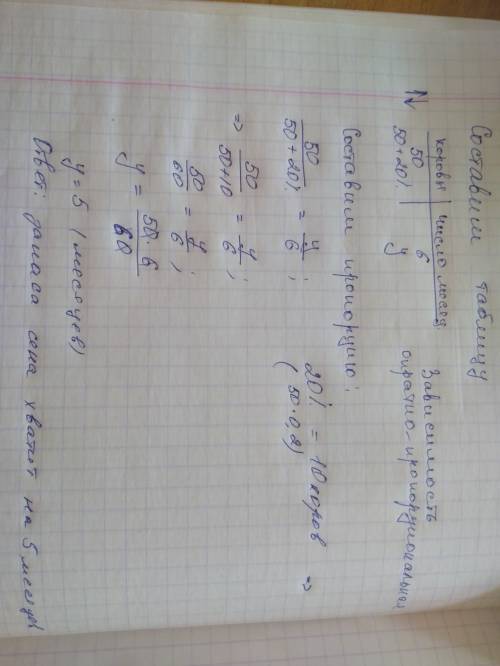 Составим таблицу
N коровы | число месяц. Зависимость
50 | 6 обратно-пропорциональная
50+20% | y
Составим пропорцию:
50/(50+20%) = y/6 ; 20% = 10 коров ⇒
(50·0,2)
⇒ 50/(50+10) = y/6 ;
50/60 = y/6 ;
y = (50·6)/60
y = 5 (месяцев)
Ответ: запаса сена хватит на 5 месяцев